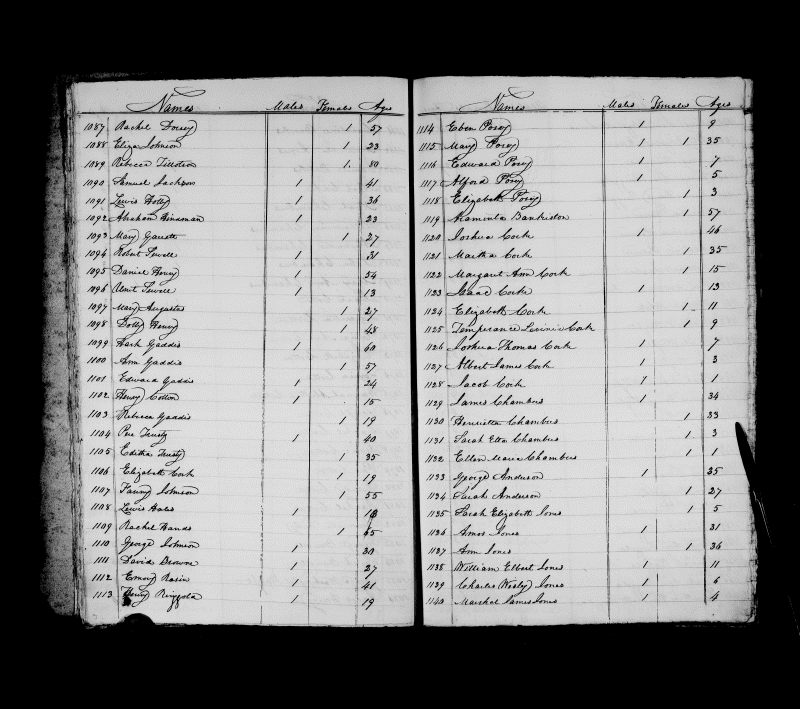 Names Males Females Ages
1087 Rachel Dorsey 1 57
1088 Eliza Johnson 1 23
1089 Rebecca 1 80
1090 Samuel Jackson 1 41
1091 Lewis Holly 1 36
1092 Abraham Hindsman 1 23
1093 Mary Garrett 1 27
1094 Robert Sewell 1 31
1095 Daniel Henry 1 54
1096 Sewell 1 13
1097 Mary Augustas 1 27
1098 Dolly Henry 1 48
1099 Hark Gaddis 1 60
1100 Ann Gaddis 1 57
1101 Edward Gaddis 1 24
1102 Henry Cotton 1 15
1103 Rebecca Gaddis 1 19
1104 Pere Trusty 1 40
1105 Editha Trusty 1 35
1106 Elizabeth Cork 1 19
1107 Fanny Johnson 1 55
1108 Lewis Hales 1 18
1109 Rachel Hands 1 65
1110 George Johnson 1 30
1111 David Browne 1 27
1112 Emory Rasin 1 41
1113 Henry Ringgold 1 19
Names Males Females Ages
1114 Eben Posey 1 9
1115 Mary Posey 1 1 35
1116 Edward Posey 1 7
1117 Alford Posey 1 5
1118 Elizabeth Posey 1 3
1119 Araminta Bankston 1 57
1120 Joshua Cork 1 46
1121 Martha Cork 1 35
1122 Margaret Ann Cork 1 15
1123 Isaac Cork 1 13
1124 Elizabeth Cork 1 11
1125 Temperance Cork 1 9
1126 Joshua Thomas Cork 1 7
1127 Albert James Cork 1 3
1128 Jacob Cork 1 1
1129 James Chambus 1 34
1130 Henrietta Chambus 1 33
1131 Sarah Eten Chambus 1 3
1132 Ellen Maria Chambus 1 1
1133 George Anderson 1 35
1134 Sarah Anderson 1 27
1135 Sarah Elizabeth Jones 1 5
1136 Amos Jones 1 31
1137 Ann Jones 1 36
1138 William Elbert Jones 1 11
1139 Charles (Wesly) Jones 1 6
1140 Marshel James Jones 1 4